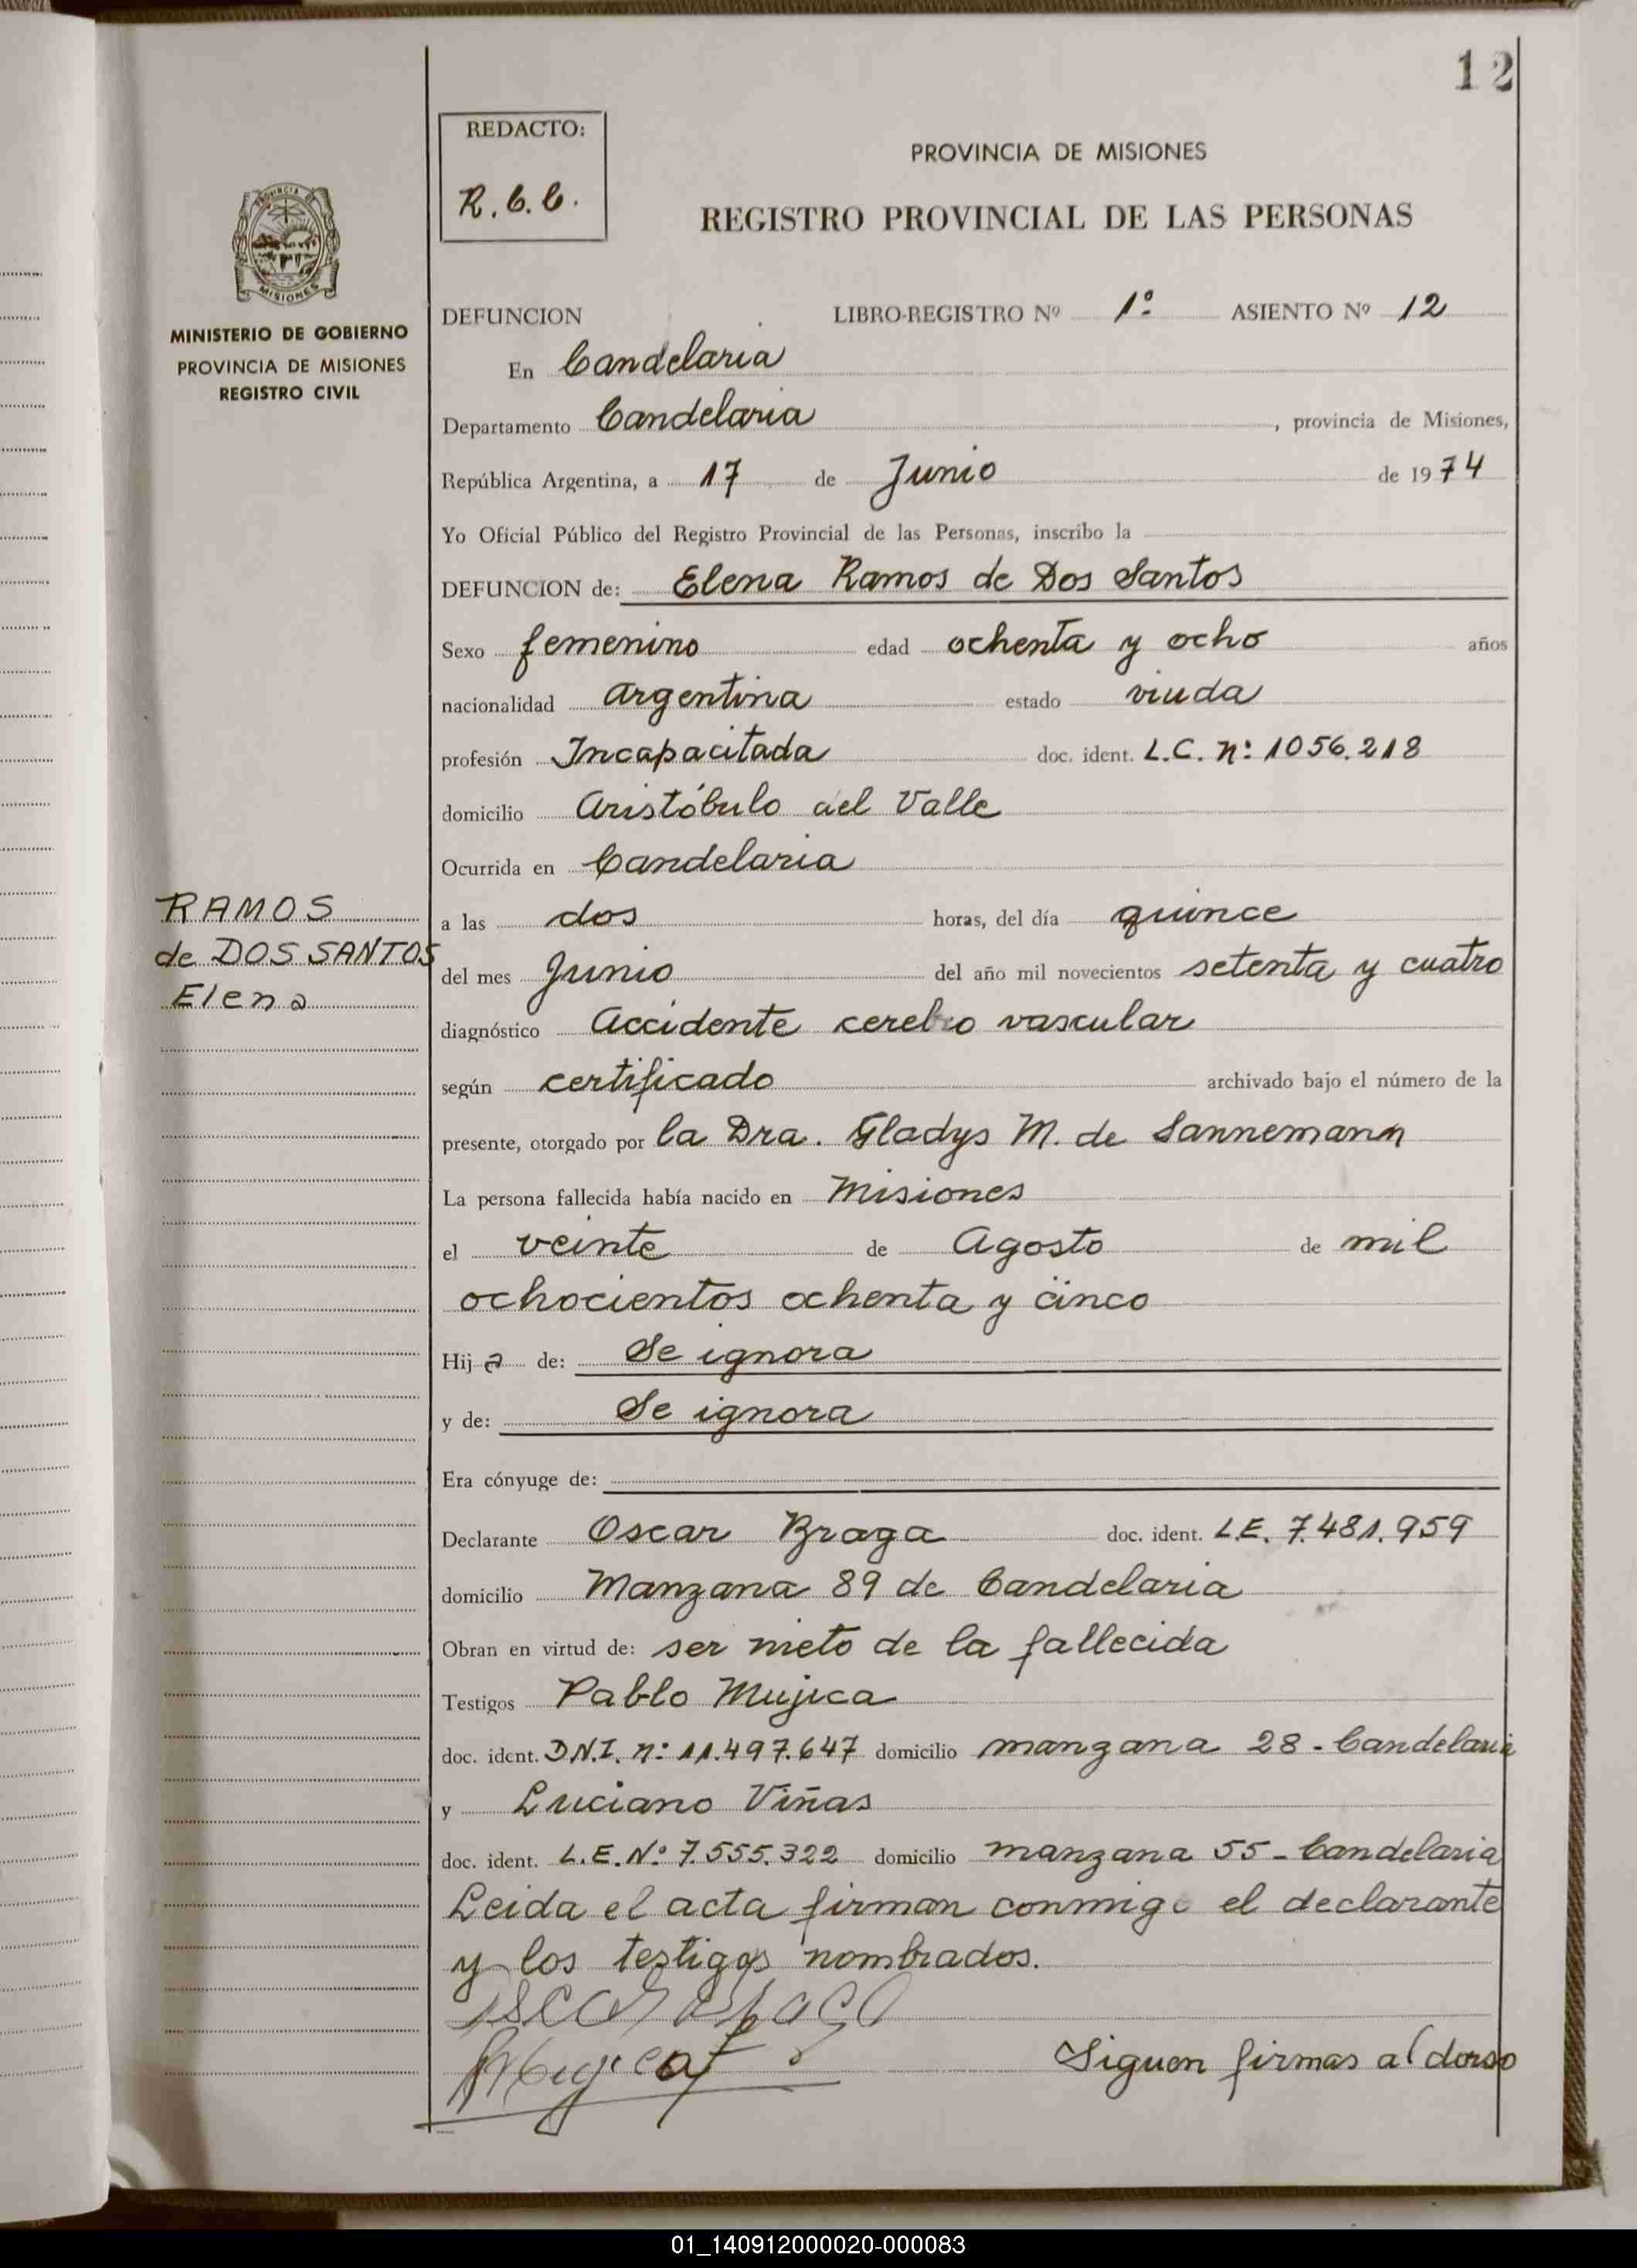 12
REDACTO:
R.C.C.
PROVINCIA DE MISIONES
REGISTRO PROVINCIAL DE LAS PERSONAS
PROVINCIA DE
MISIONES
MINISTERIO DE GOBIERNO
PROVINCIA DE MISIONES
REGISTRO CIVIL
DEFUNCION LIBRO-REGISTRO Nº 1º ASIENTO Nº 12
En Candelaria
Departamento Candelaria, provincia de Misiones,
República Argentina, a 17 de Junio de 1974
Yo Oficial Público del Registro Provincial de las Personas, inscribo la
DEFUNCION de: Elena Ramos de Dos Santos
Sexo femenino edad ochenta y ocho años
nacionalidad argentina estado viuda
profesión Incapacitada doc. ident. L.C. nº 1056.218
domicilio Aristóbulo del Valle
Ocurrida en Candelaria
RAMOS
de DOS SANTOS
Elena
a las dos horas, del día quince
del mes Junio del año mil novecientos setenta y cuatro
diagnóstico Accidente cerebro vascular
según certificado archivado bajo el número de la
presente, otorgado por la Dra. Gladys M. de Sannemann
La persona fallecida había nacido en Misiones
el veinte de Agosto de mil
ochocientos ochenta y cinco
Hija de: Se ignora
y de: Se ignora
Era cónyuge de:
Declarante Oscar Braga doc. ident. L.E. 7.481.959
domicilio Manzana 89 de Candelaria
Obran en virtud de: ser nieto de la fallecida
Testigos Pablo Mujica
doc. ident. D.N.I. nº 11.497.647 domicilio manzana 28 - Candelaria
y Luciano Viñas
doc. ident. L.E. Nº 7.555.322 domicilio manzana 55 - Candelaria
Leida el acta firman conmigo el declarante
y los testigos nombrados.
Siguen firmas al dorso
01_140912000020-000083